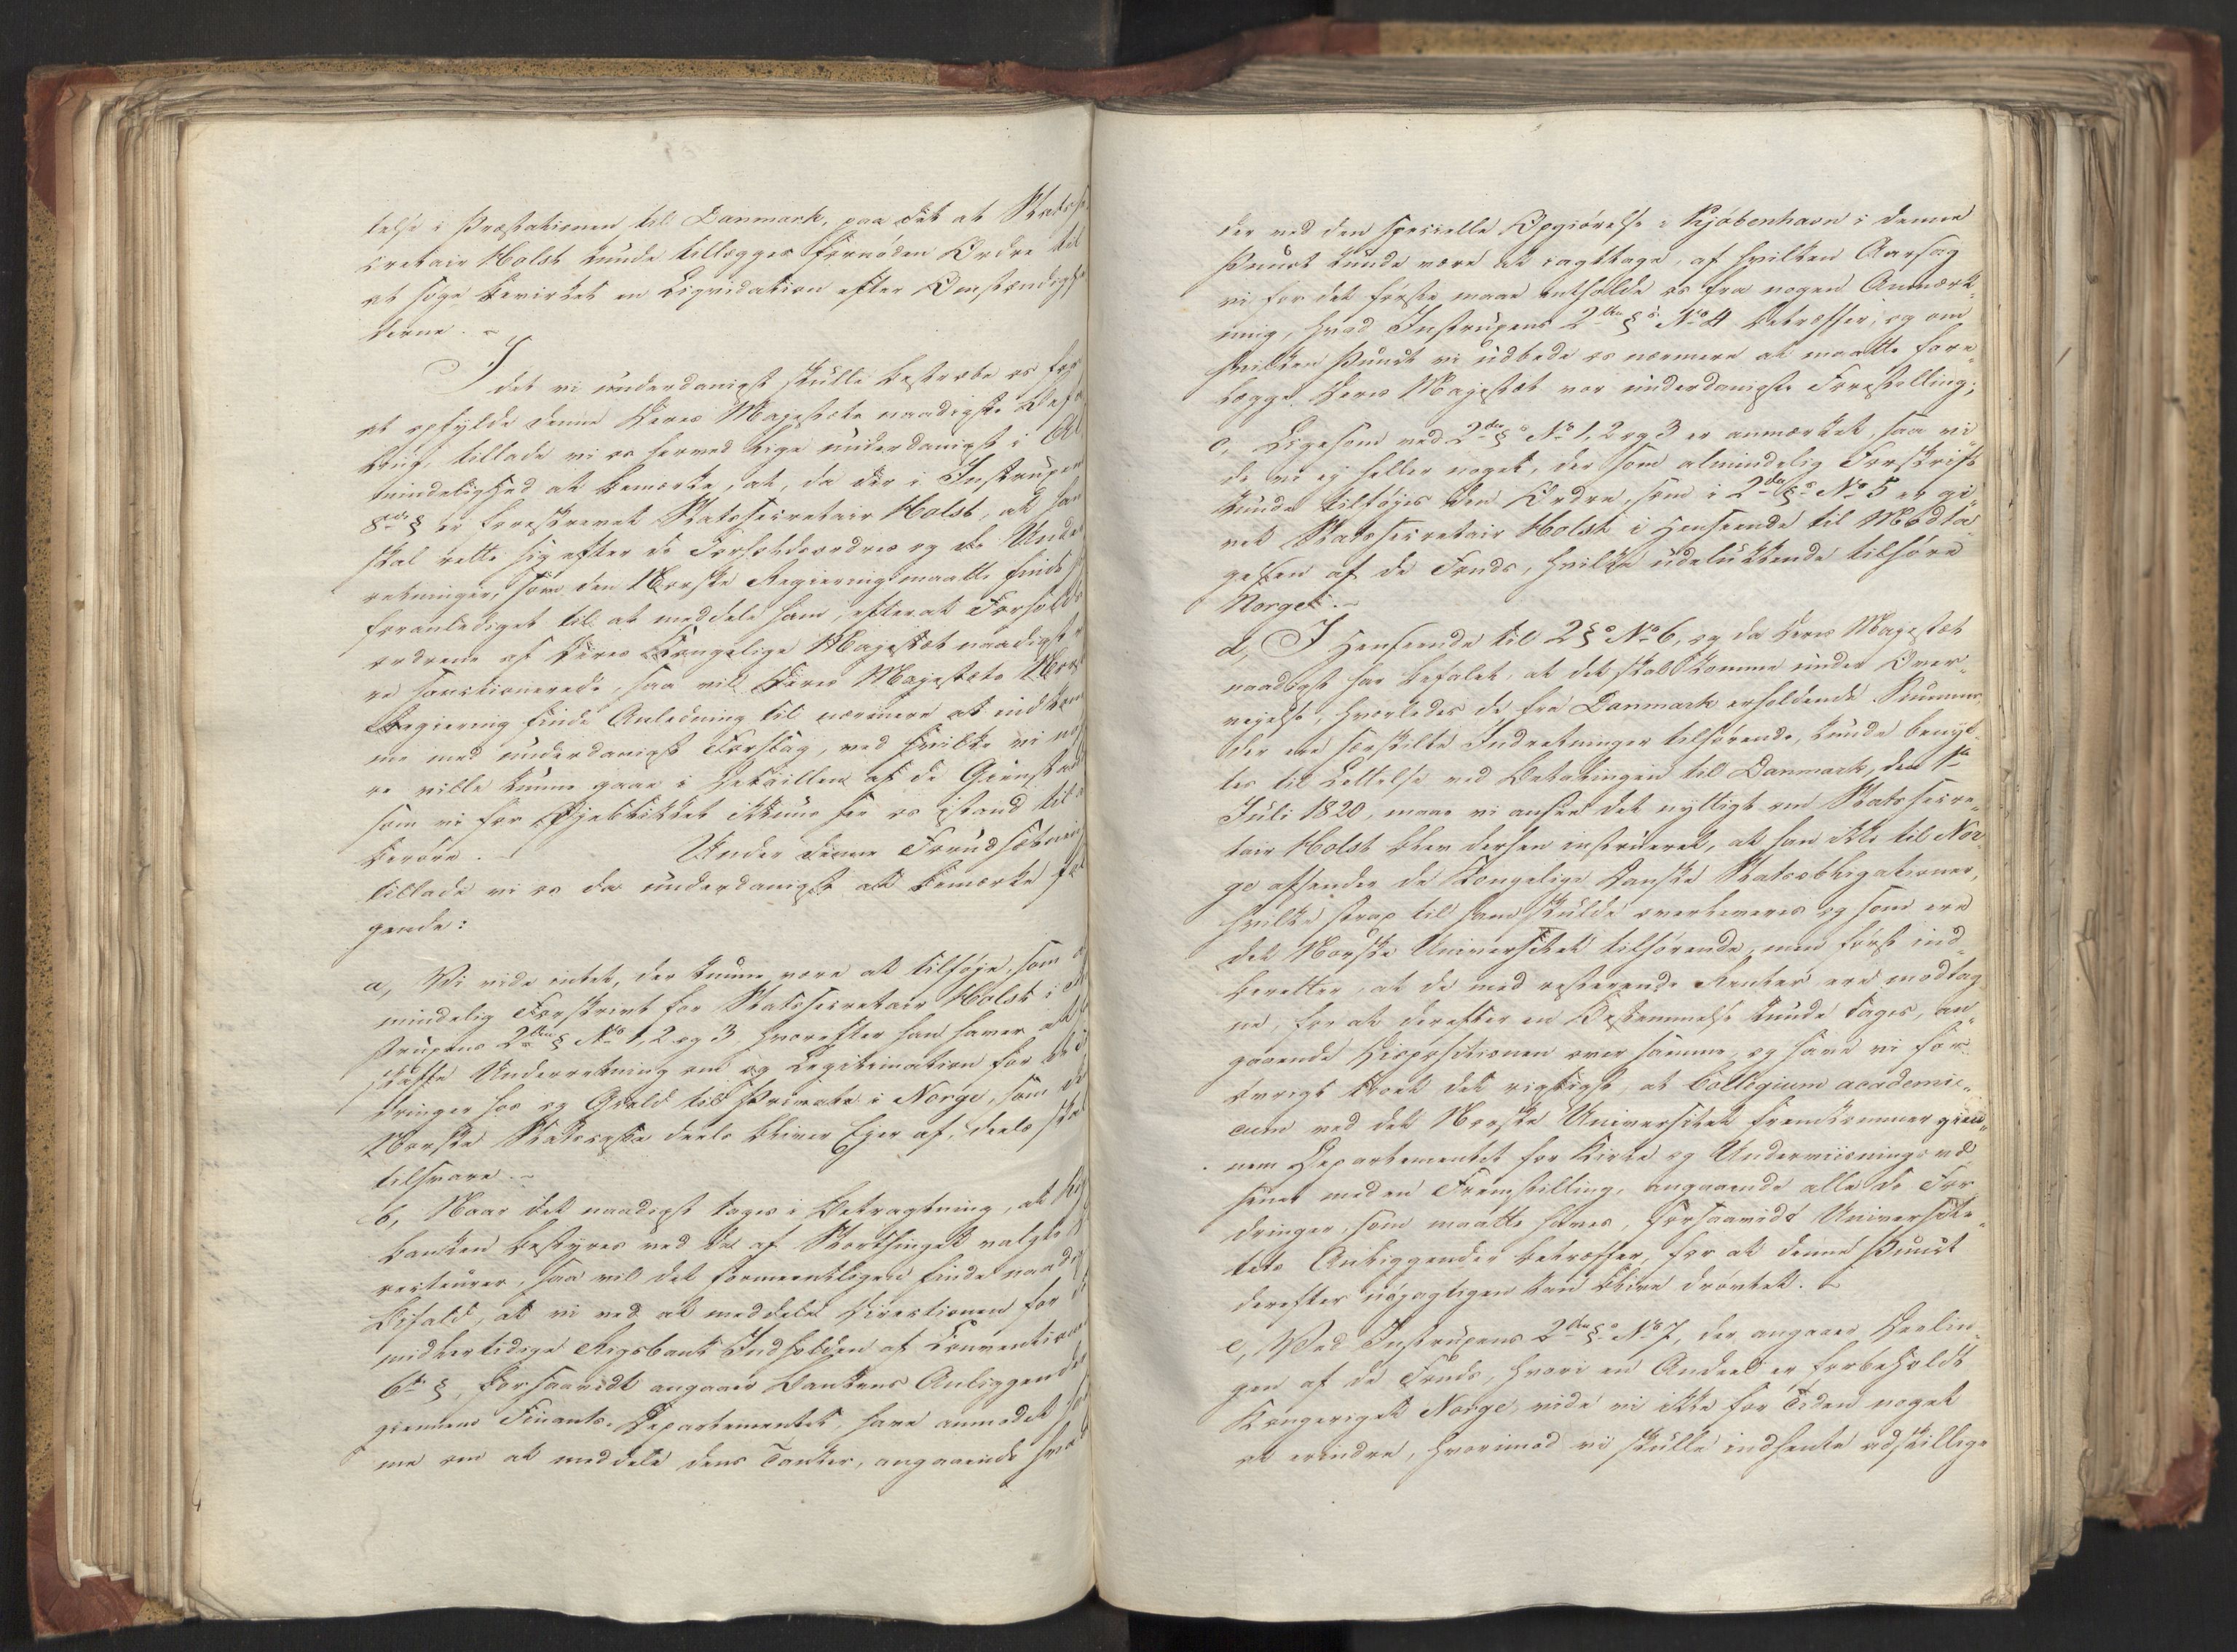 telse i Præstationen til Danmark, paa det at Statsse
cretair Holst kunde tillægges fornøden Ordre til
at søge bevirket en Liqvidation efter Omstændighe
derne. ~
I det vi underdanigst skulle bestræbe os for
at opfylde denne Deres Majestæts naadigste Befa
ling, tillade vi os herved lige underdanigst i Al
mindelighed at bemærke, at, da der i Instruxen
8de § er foreskrevet Statssecretair Holst, at han
skal rette sig efter de Forholdsordres og de Under
retninger, som den Norske Regiering maatte finde sig
foranlediget til at meddele ham, efterat Forholds
ordrene af Deres Kongelige Majestæt naadigst
ere sanctionerede, saa vil Deres Majestæts Norske
Regiering finde Anledning til nærmere at indkom
me med underdanigst Forslag, ved hvilke vi nøj
re ville kunne gaae i Detaillen af de Gienstande
som vi for Øjeblikket ikkuns see os istand til at
berøre. ~ Under denne Forudsætning
tillade vi os da underdanigst at bemærke føl
gende:
a, Vi vide intet, der kunne være at tilføje, som al
mindelig Forskrivt for Statssecretair Holst i In
struxens 2den § No 1, 2 og 3 hvorefter han haver at
skaffe Underretning om og Legitimation for de For
dringer hos og Gjæld til Private i Norge, som den
Norske Statscasse deels bliver Ejer af, deels skal
tilsvare. ~
b, Naar det naadigst tages i Betragtning, at Rigs
banken bestyres ved de af Storthinget valgte Di
recteurer, saa vil det formeentligen finde naadigst
Bifald, at vi ved at meddele Directionen for den
midlertidige Rigsbank Indholden af Conventionens
6te §, forsaavidt angaaer Bankens Anliggender
giennem Finants-Departementet, have anmodet sam
me om at meddele dens Tanker, angaaende hvad
der ved den specielle Opgiørelse i Kjöbenhavn i denne
Punct kunde være at iagttage, af hvilken Aarsag
vi for det første maae entholde os fra nogen Anmærk„
ning, hvad Instruxens 2den §s No 4 betræffer, og om
hvilken Punct vi udbede os nærmere at maatte fore„
lægge Deres Majestæt vor underdanigste Forestilling;
c, Ligesom ved 2den § No 1, 2 og 3 er anmærket, saa vi„
de vi ej heller noget, der som almindelig Forskrift
kunde tilføjes den Ordre, som i 2den § No 5 er gi„
vet Statssecretair Holst i Henseende til Modta„
gelsen af de Fonds, hvilke udelukkende tilhøre
Norge. ~
d, I Henseende til 2 § No 6, og da Deres Majestæt
naadigst har befalet, at det skal komme under Over„
vejelse, hvorledes de fra Danmark erholdende Summer,
der ere særskilte Indretninger tilhørende, kunde benyt„
tes til Lettelse ved Betalingen til Danmark, den 1ste
Juli 1820, maae vi ansee det nyttigt om Statssecre„
tair Holst blev derhen instrueret, at han ikke til Nor„
ge afsender de Kongelige Danske Statsobligationer,
hvilke strax til ham skulde overleveres og som ere
det Norske Universitet tilhørende, men først ind„
beretter, at de med resterende Renter ere modtag
ne, for at derefter en Bestemmelse kunde tages, an„
gaaende Dispositionen over samme, og have vi for„
øvrigt troet det rigtigst, at Collegium academi„
cum ved det Norske Universitet fremkommer gien„
nem Departementet for Kirke og Underviisningsvæ
senet med en Fremstilling, angaaende alle de For
dringer, som maatte haves, forsaavidt Universite„
tets Anliggender betræffer, for at denne Punct
derefter nøjagtigen kan blive drøvtet. ~
e, Ved Instruxens 2den § No 7, der angaaer Deelin„
gen af de Fonds, hvori en Andeel er forbeholdt
Kongeriget Norge, vide vi ikke for Tiden noget
at erindre, hvorimod vi skulle indhente adskillige